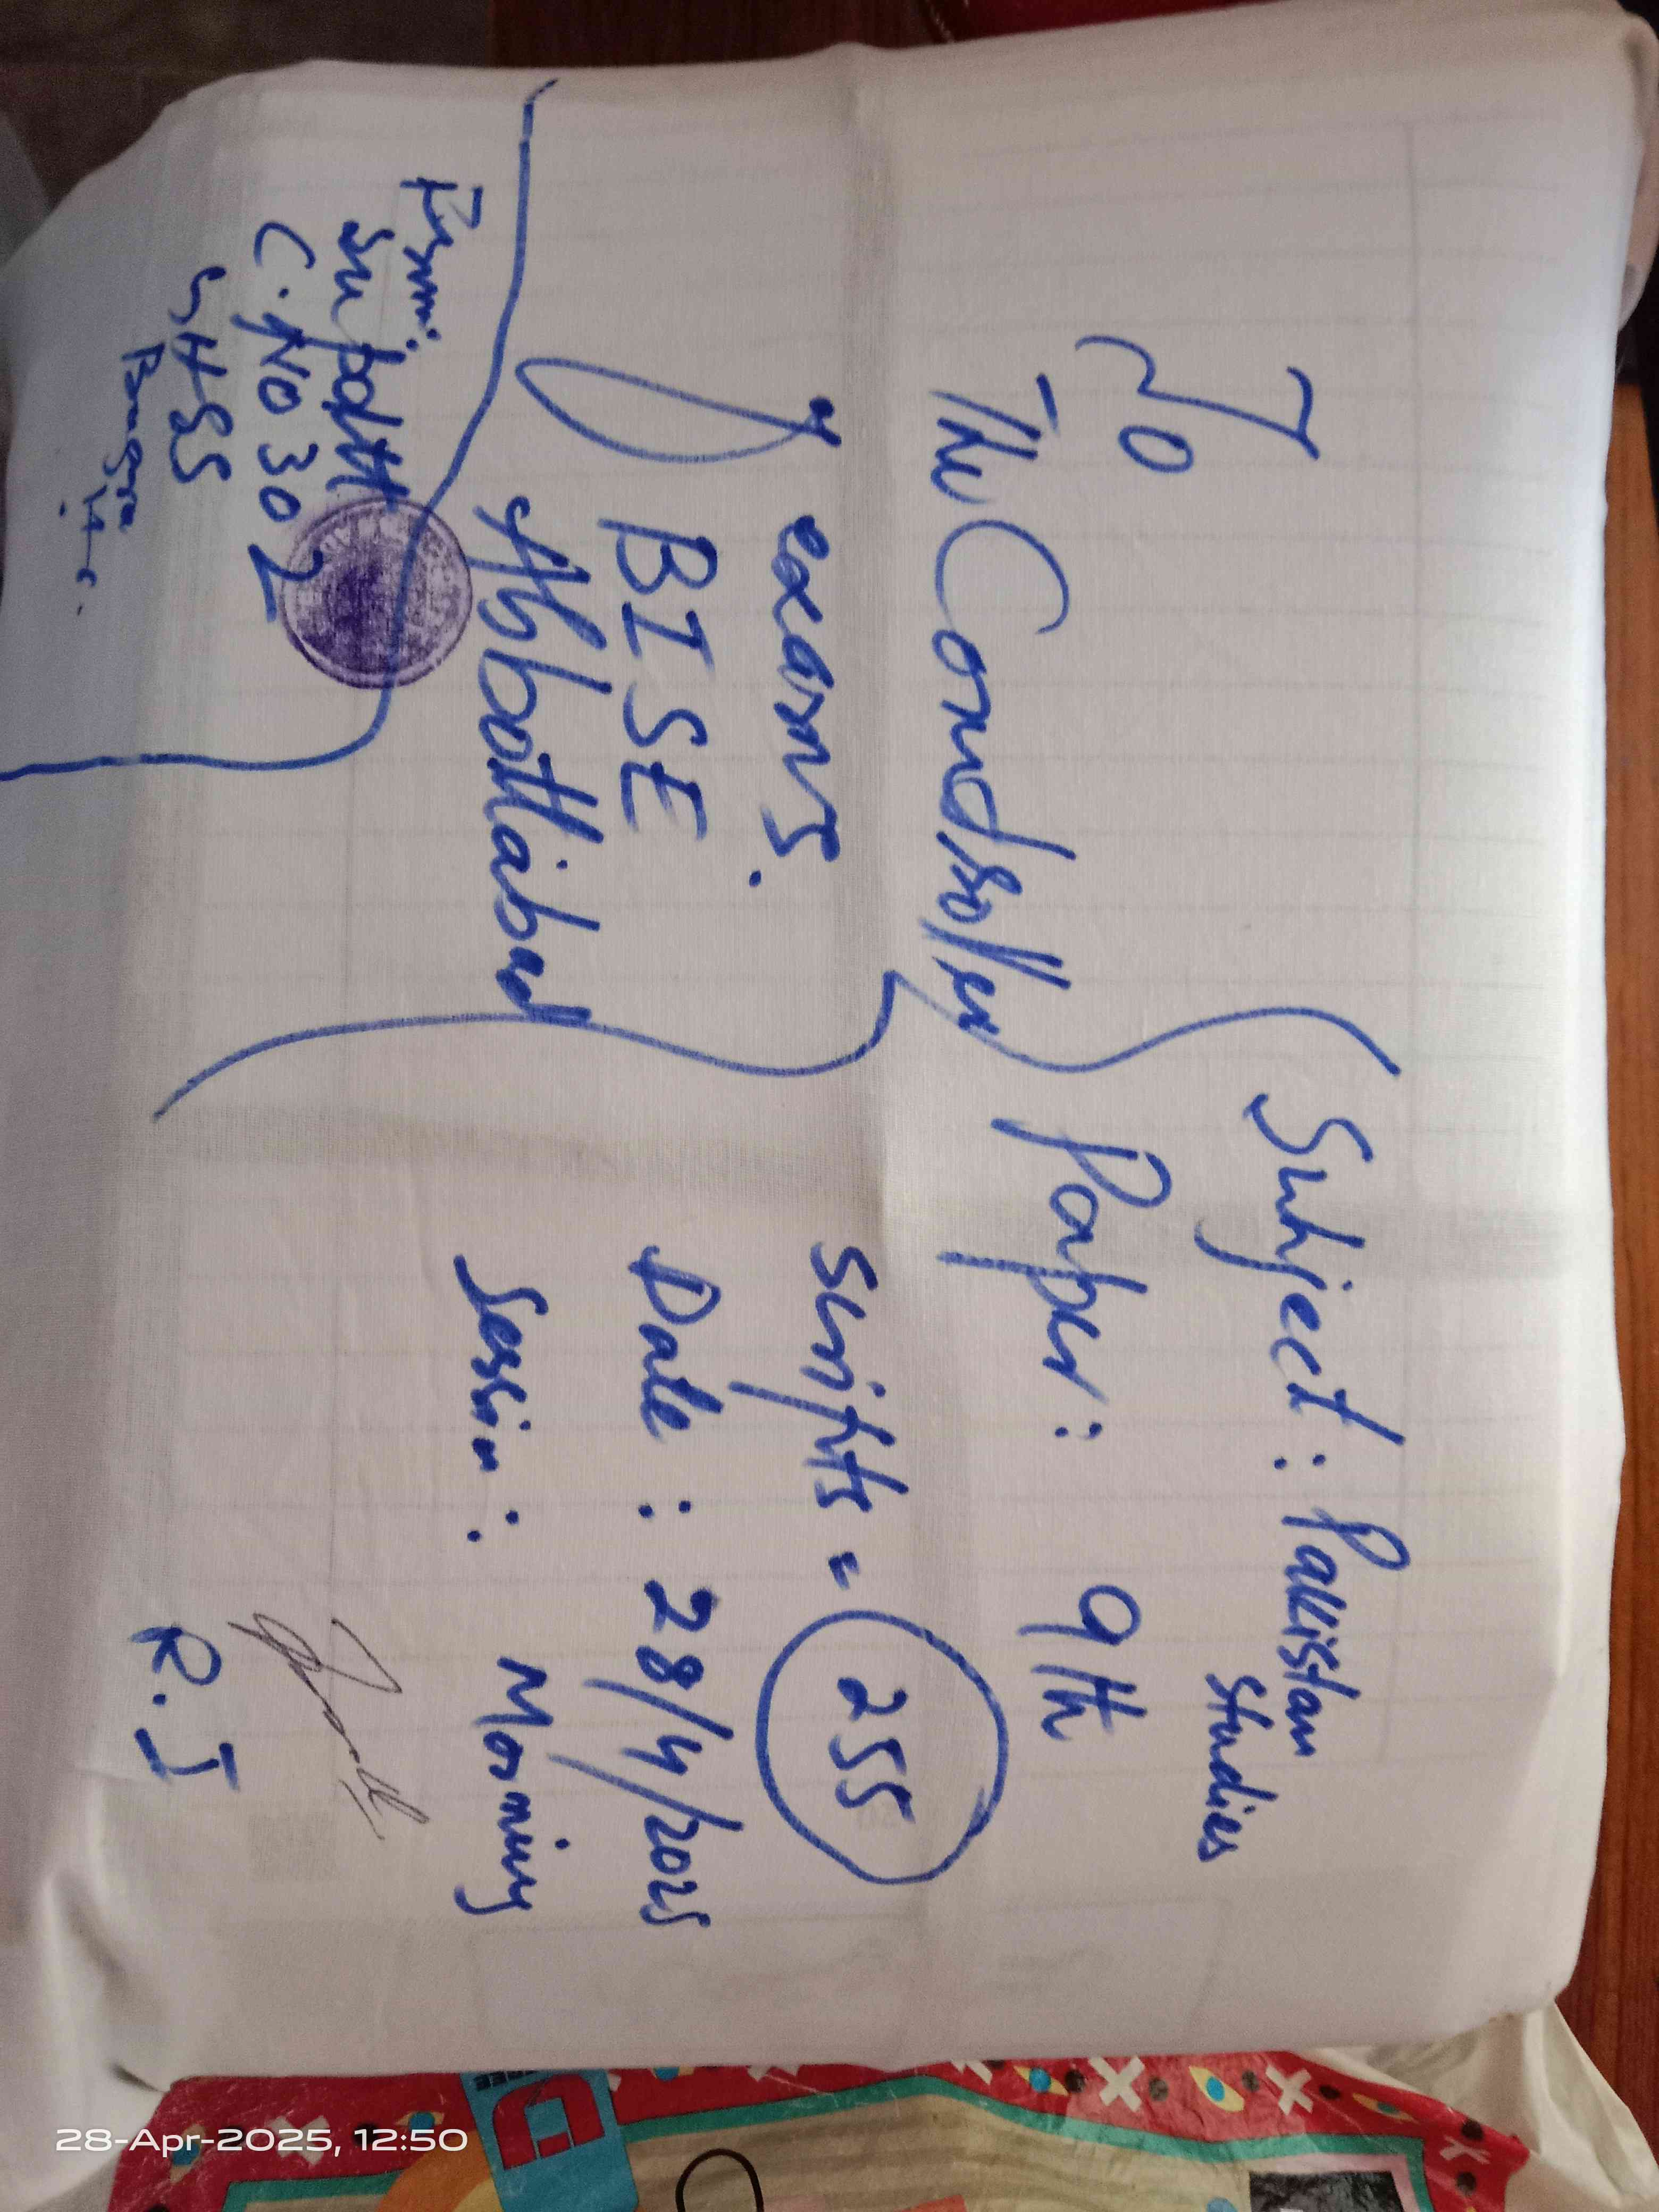 To
The Controller
exams.
BISE
Abbottabad
Subject : Pakistan
Studies
Paper : 9th
Scripts = 255
Date : 28/4/2025
Session : Morning
R.I
From:
Supdtt
C.NO 302
GHSS
28-Apr-2025, 12:50